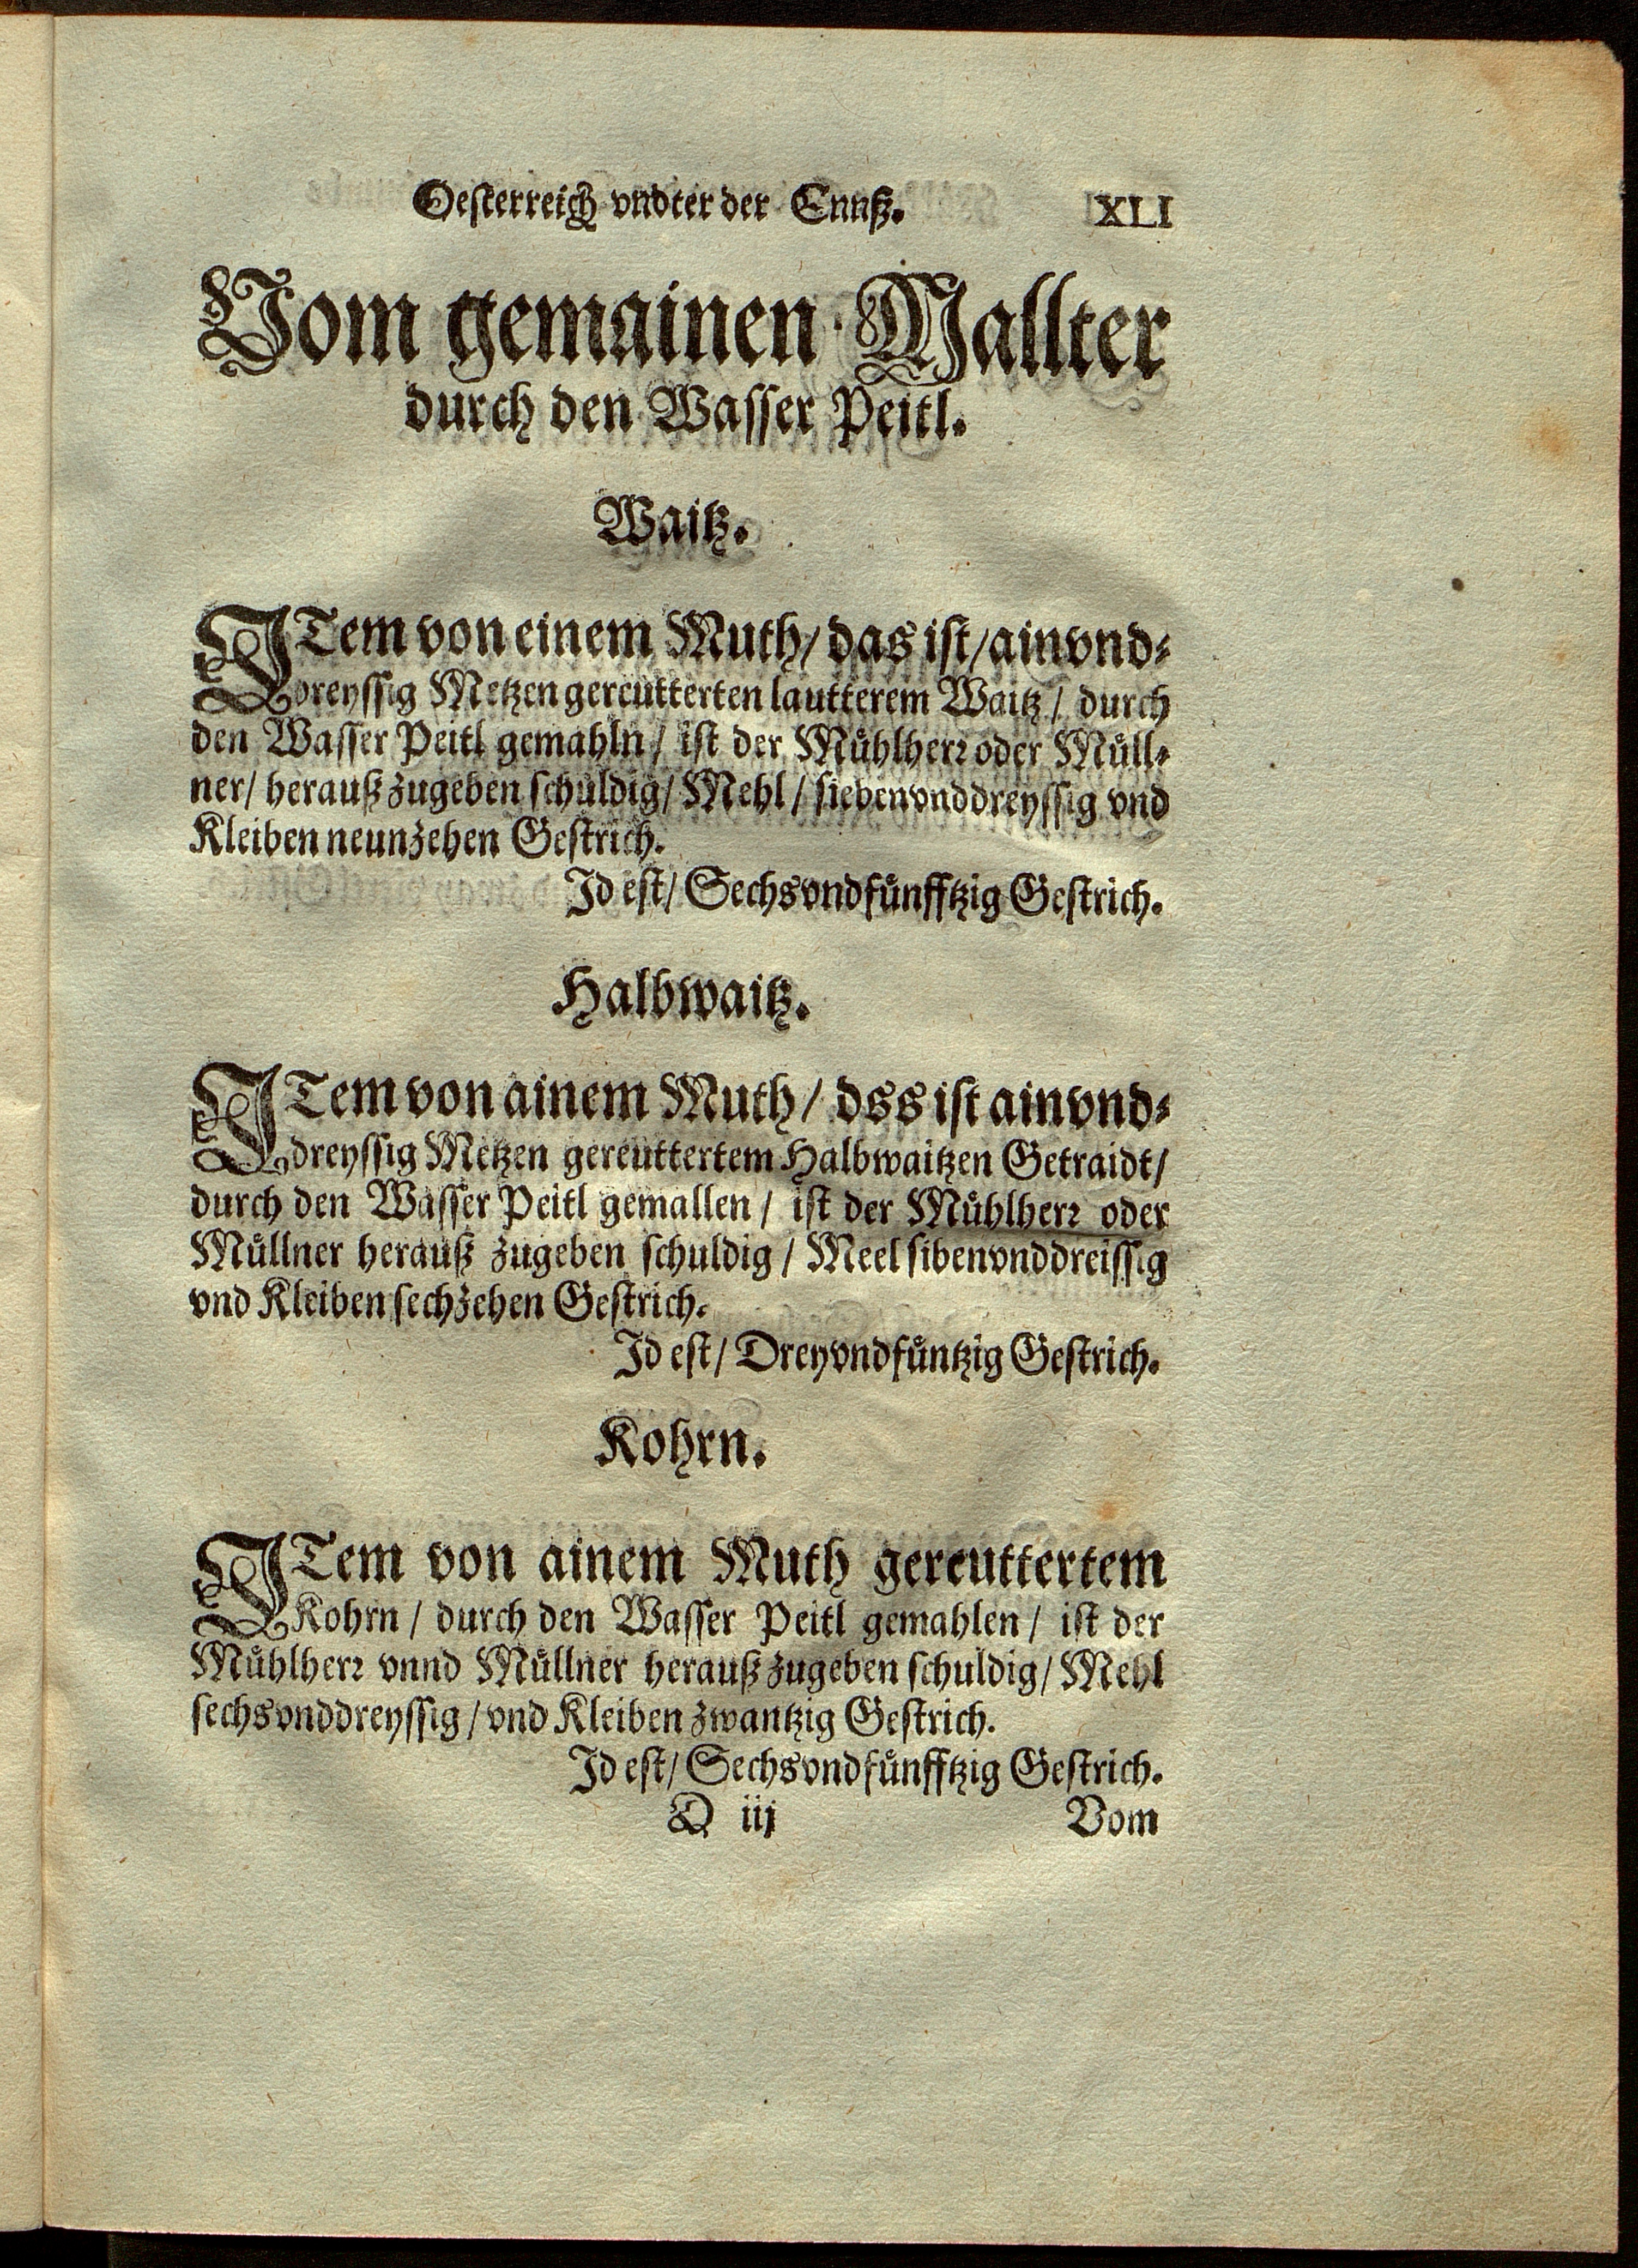 Oesterreich vndter der Ennß. XLI
Vom gemainen Mallter
durch den Wasser Peitl.
Waitz.
ITem von einem Muth/ das ist/ ainvnd-
dreyssig Metzen gereutterten lautterem Waitz/ durch
den Wasser Peitl gemahln/ ist der Mühlherr oder Müll-
ner/ herauß zugeben schuldig/ Mehl/ siebenvnddreyssig vnd
Kleiben neunzehen Gestrich.
Id est/ Sechsvndfünfftzig Gestrich.
Halbwaitz.
ITem von ainem Muth/ dss ist ainvnd-
dreyssig Metzen gereuttertem Halbwaitzen Getraidt/
durch den Wasser Peitl gemallen/ ist der Mühlherr oder
Müllner herauß zugeben schuldig/ Meel sibenvnddreissig
vnd Kleiben sechzehen Gestrich.
Id est/ Dreyvndfüntzig Gestrich.
Kohrn.
ITem von ainem Muth gereuttertem
Kohrn/ durch den Wasser Peitl gemahlen/ ist der
Mühlherr vnnd Müllner herauß zugeben schuldig/ Mehl
sechsvnddreyssig/ vnd Kleiben zwantzig Gestrich.
Id est/ Sechsvndfünfftzig Gestrich.
Q iij Vom